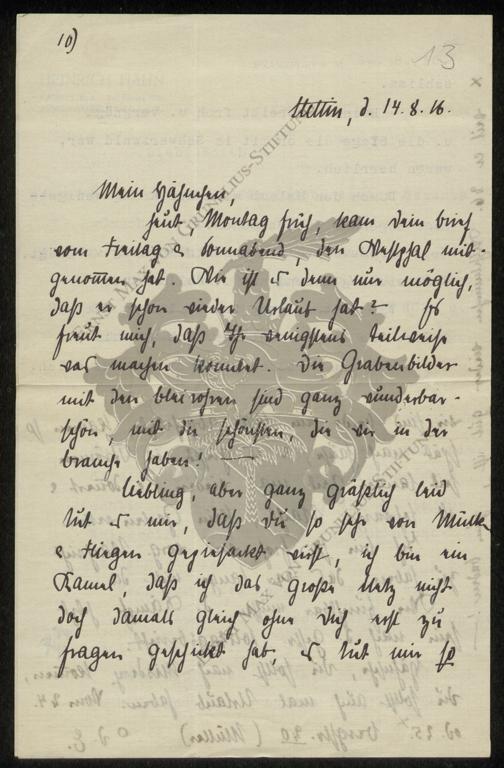 10)
13
Stettin, d. 14.8.16.
Mein Hähnchen,
heut Montag früh, kam dein brief
vom Freitag & Sonnabend, den Westphal mit-
genommen hat. Wie ist es denn nur möglich,
daß er schon wieder Urlaub hat? Es
freut mich, daß Ihr wenigstens teilweise
was machen konntet. Die Grabenbilder
mit den bleirohren sind ganz wunderbar-
schön, mit die schönsten, die wir in der
branche haben! —
Liebling, aber ganz gräßlich leid
tut es mir, daß du so sehr von Mücken
& Fliegen gepiesackt wirst, ich bin ein
Kamel, daß ich das große Netz nicht
doch damals gleich ohne dich erst zu
fragen geschickt hab, es tut mir so